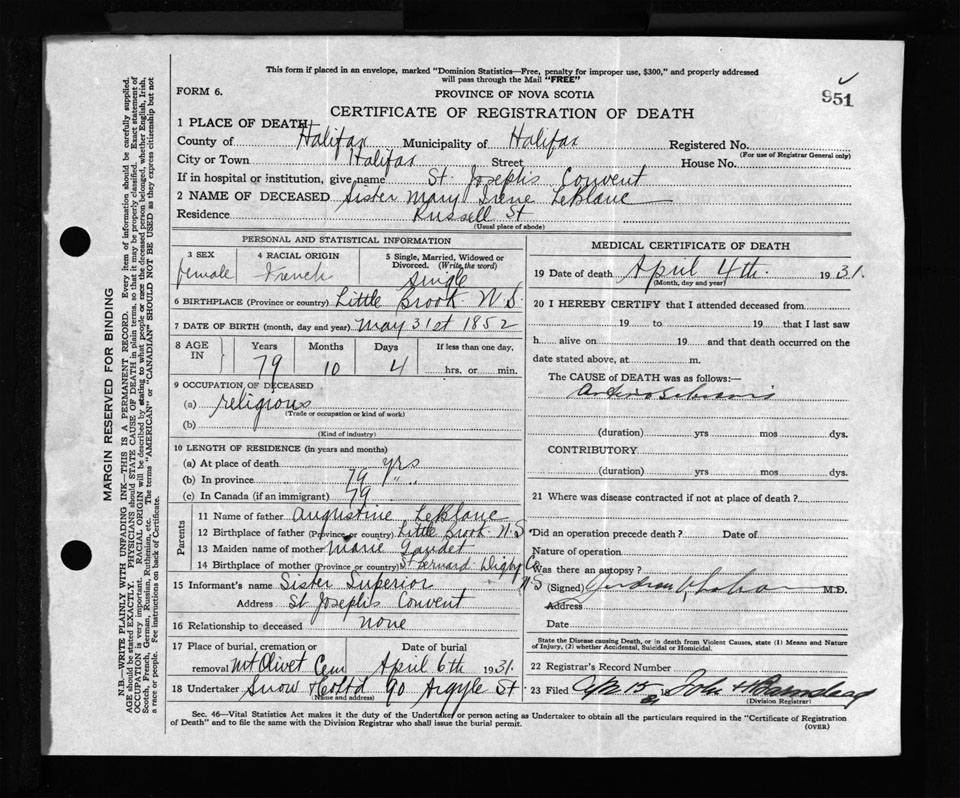 This form if placed in an envelope, marked "Dominion Statistics—Free, penalty for improper use, $300," and properly addressed
will pass through the Mail "FREE"
951
FORM 6.
PROVINCE OF NOVA SCOTIA
CERTIFICATE OF REGISTRATION OF DEATH
1 PLACE OF DEATH
County of Halifax Municipality of Halifax Registered No.
(For use of Registrar General only)
City or Town Halifax Street House No.
If in hospital or institution, give name St. Joseph's Convent
2 NAME OF DECEASED Sister Mary Irene LeBlanc
Residence Russell St
(Usual place of abode)
PERSONAL AND STATISTICAL INFORMATION
3 SEX
female
4 RACIAL ORIGIN
French
5 Single, Married, Widowed or
Divorced. (Write the word)
Single
6 BIRTHPLACE (Province or country) Little Brook N.S.
7 DATE OF BIRTH (month, day and year) May 31st 1852
8 AGE IN
Years Months Days If less than one day.
79 10 4 hrs. or min.
9 OCCUPATION OF DECEASED
(a) religious
(Trade or occupation or kind of work)
(b)
(Kind of industry)
10 LENGTH OF RESIDENCE (in years and months)
(a) At place of death yrs
(b) In province 79 " "
(c) In Canada (if an immigrant) 79
Parents
11 Name of father Augustine LeBlanc
12 Birthplace of father (Province or country) Little Brook N.S.
13 Maiden name of mother Marie Gaudet
14 Birthplace of mother (Province or country) St Bernard Digby Co
N.S
15 Informant's name Sister Superior
Address St. Joseph's Convent
16 Relationship to deceased none
17 Place of burial, cremation or
removal Mt Olivet Cem
Date of burial
April 6th 1931.
18 Undertaker Snow & Co Ltd 90 Argyle St.
(Name and address)
MEDICAL CERTIFICATE OF DEATH
19 Date of death April 4th. 1931.
(Month, day and year)
20 I HEREBY CERTIFY that I attended deceased from
19 to 19 that I last saw
h alive on 19 and that death occurred on the
date stated above, at m.
The CAUSE of DEATH was as follows:—
(duration) yrs mos dys.
CONTRIBUTORY
(duration) yrs mos dys.
21 Where was disease contracted if not at place of death?
Did an operation precede death? Date of
Nature of operation
Was there an autopsy?
(Signed) M.D.
Address
Date
State the Disease causing Death, or in death from Violent Causes, state (1) Means and Nature
of Injury, (2) whether Accidental, Suicidal or Homicidal.
22 Registrar's Record Number
23 Filed 19 John H Barnstead
(Division Registrar)
Sec. 46—Vital Statistics Act makes it the duty of the Undertaker or person acting as Undertaker to obtain all the particulars required in the "Certificate of Registration
of Death" and to file the same with the Division Registrar who shall issue the burial permit.
(OVER)
MARGIN RESERVED FOR BINDING
N.B.—WRITE PLAINLY WITH UNFADING INK—THIS IS A PERMANENT RECORD. Every item of information should be carefully supplied.
AGE should be stated EXACTLY. PHYSICIANS should STATE CAUSE OF DEATH in plain terms, so that it may be properly classified. Exact statement of
OCCUPATION is very important. RACIAL ORIGIN will be described by stating to what people or race the deceased person belonged, whether English, Irish,
Scotch, French, German, Russian, Ruthenian, etc. The terms "AMERICAN" or "CANADIAN" SHOULD NOT BE USED as they express citizenship but not
a race or people. See instructions on back of Certificate.